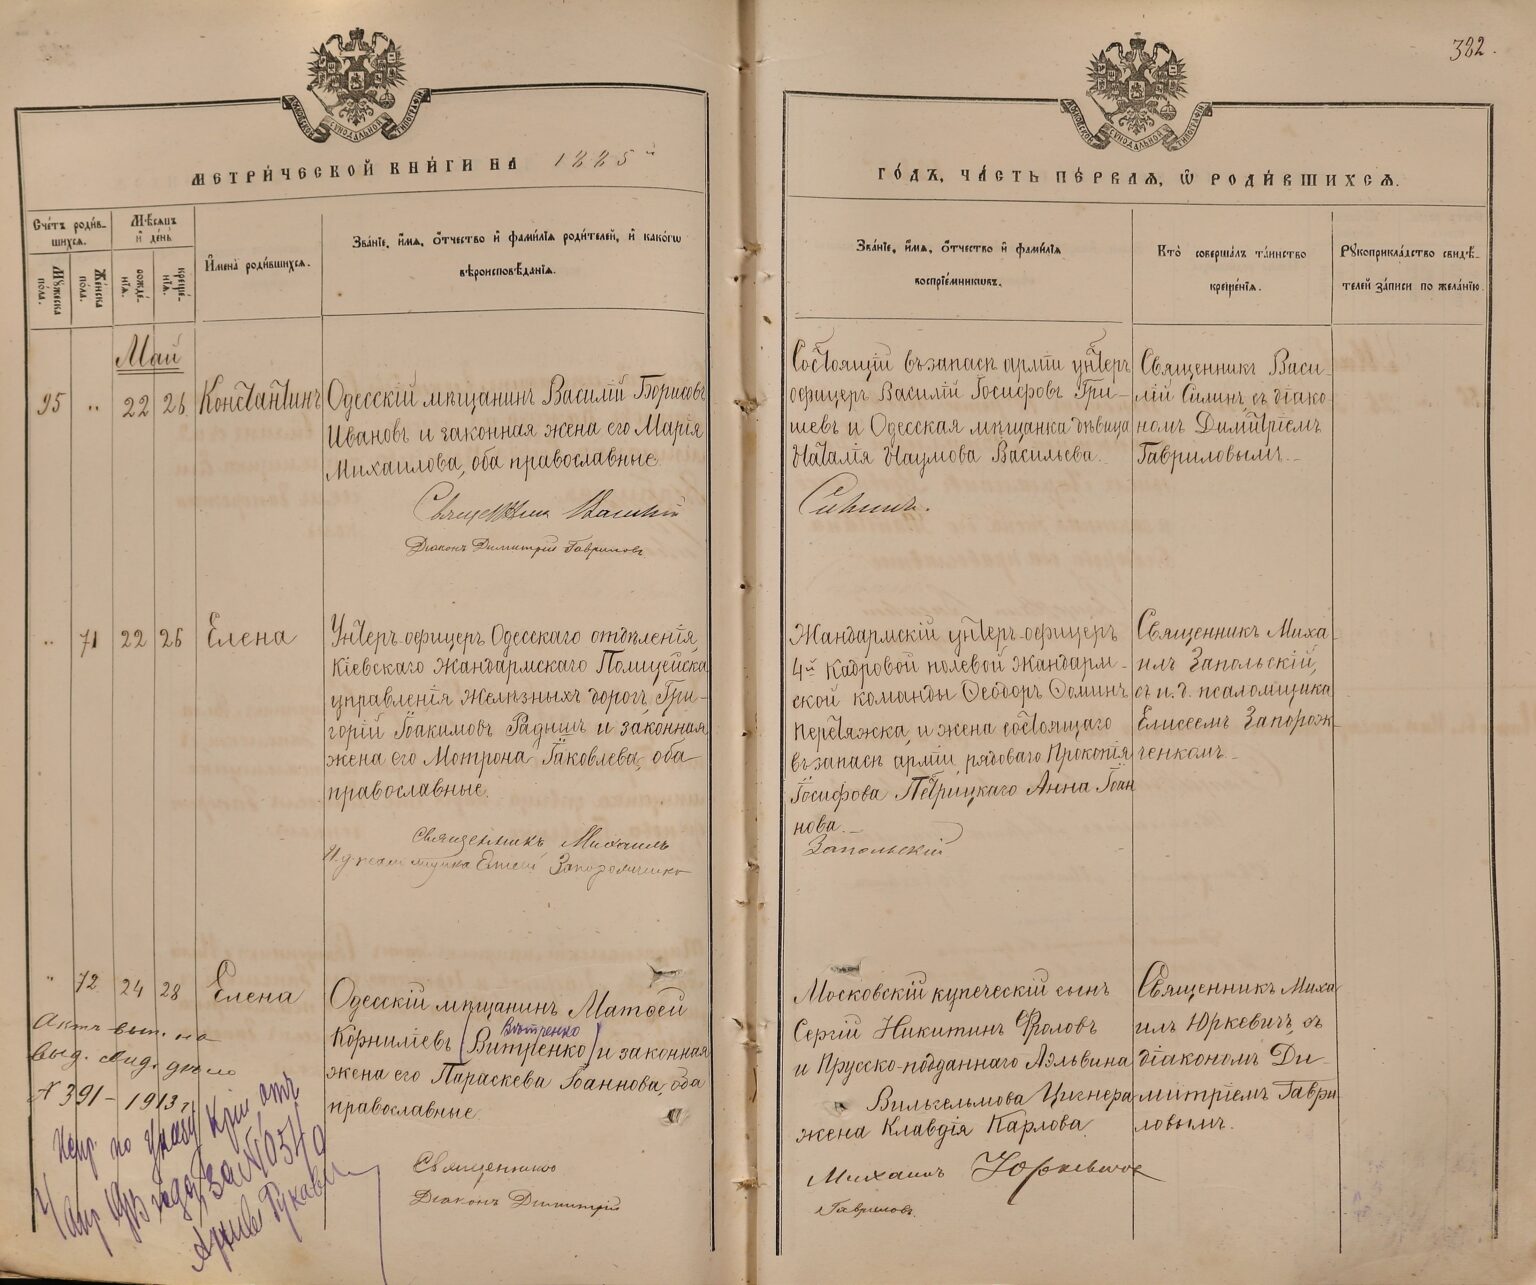 382.
МОСКОВСКОЙ СѴНОДАЛЬНОЙ ТИПОГРАФІИ
МОСКОВСКОЙ СѴНОДАЛЬНОЙ ТИПОГРАФІИ
МЕТРИ́ЧЕСКОЙ КНИ́ГИ НА 1885й
ГО́ДЪ, ЧА́СТЬ ПЕ́РВАѦ, Ѡ҆ РОДИ́ВШИХСѦ.
Сче́тъ роди́в-
шихсѧ.
Мꙋ́жеска по́ла.
Же́нска по́ла.
Мѣ́сѧцъ
и҆ де́нь
рожде́-
нїѧ.
креще́-
нїѧ.
И҆мена̀ роди́вшихсѧ.
Зва́нїе, и҆́мѧ, ѻ҆́тчество и҆ фами́лїѧ роди́телей, и҆ како́гѡ
вѣроисповѣ́данїѧ.
Зва́нїе, и҆́мѧ, ѻ҆́тчество и҆ фами́лїѧ
воспрїе́мниковъ.
Кто̀ соверша́лъ та́инство
креще́нїѧ.
Рꙋкоприкла́дство свидѣ́-
телей за́писи по жела́нїю.
Май
95 „ 22 26 Константинъ
Одесскій мѣщанинъ Василій Борисовъ
Ивановъ и законная жена его Марія
Михаилова, оба православные
Священник Василій
Діаконъ Димитрій Гавриловъ
Состоящій въ запасѣ арміи унтеръ
офицеръ Василій Іосифовъ Гри-
шевъ и Одесская мѣщанка дѣвица
Наталія Наумова Васильева.
Силинъ.
Священникъ Васи-
лій Силинъ съ діако-
номъ Димитріемъ
Гавриловымъ.
„ 71 22 26 Елена
Унтеръ-офицеръ Одесскаго отдѣленія
Кіевскаго Жандармскаго Полицейска
управленія желѣзныхъ дорогъ Гри-
горій Іоакимовъ Радышъ и законная
жена его Мотрона Іаковлева, оба
православные.
Священникъ Михаилъ
И. д. псаломщика Елисей Запорожченко
Жандармскій унтеръ-офицеръ
4й Кадровой полевой жандарм-
ской команды Ѳеодоръ Ѳоминъ
Перетяжка, и жена состоящаго
въ запасѣ арміи, рядоваго Прокопія
Іосифова Петрицкаго Анна Іоан
нова.
Запольскій
Священникъ Миха
илъ Запольскій,
съ и. д. псаломщика
Елисеемъ Запорож-
ченкомъ.
„ 72 24 28 Елена
Одесскій мѣщанинъ Матѳей
Корниліевъ (Витренко) и законная
Вѣтренко
жена его Параскева Іоаннова, оба
православные
Священникъ
Діаконъ Димитрій
Московскій купеческій сынъ
Сергій Никитинъ Фроловъ
и Прусско-подданнаго Аэльвина
Вильгельмова Цигнера
жена Клавдія Карлова
Михаилъ Юркевичъ
Гавриловъ.
Священникъ Миха
илъ Юркевичъ съ
діакономъ Ди-
митріемъ Гаври
ловымъ.
Актъ вып. на
выд. дѣло
№ 391-1913 г.
Испр. по указу Х. Д. К. отъ
1913 года за № 10540